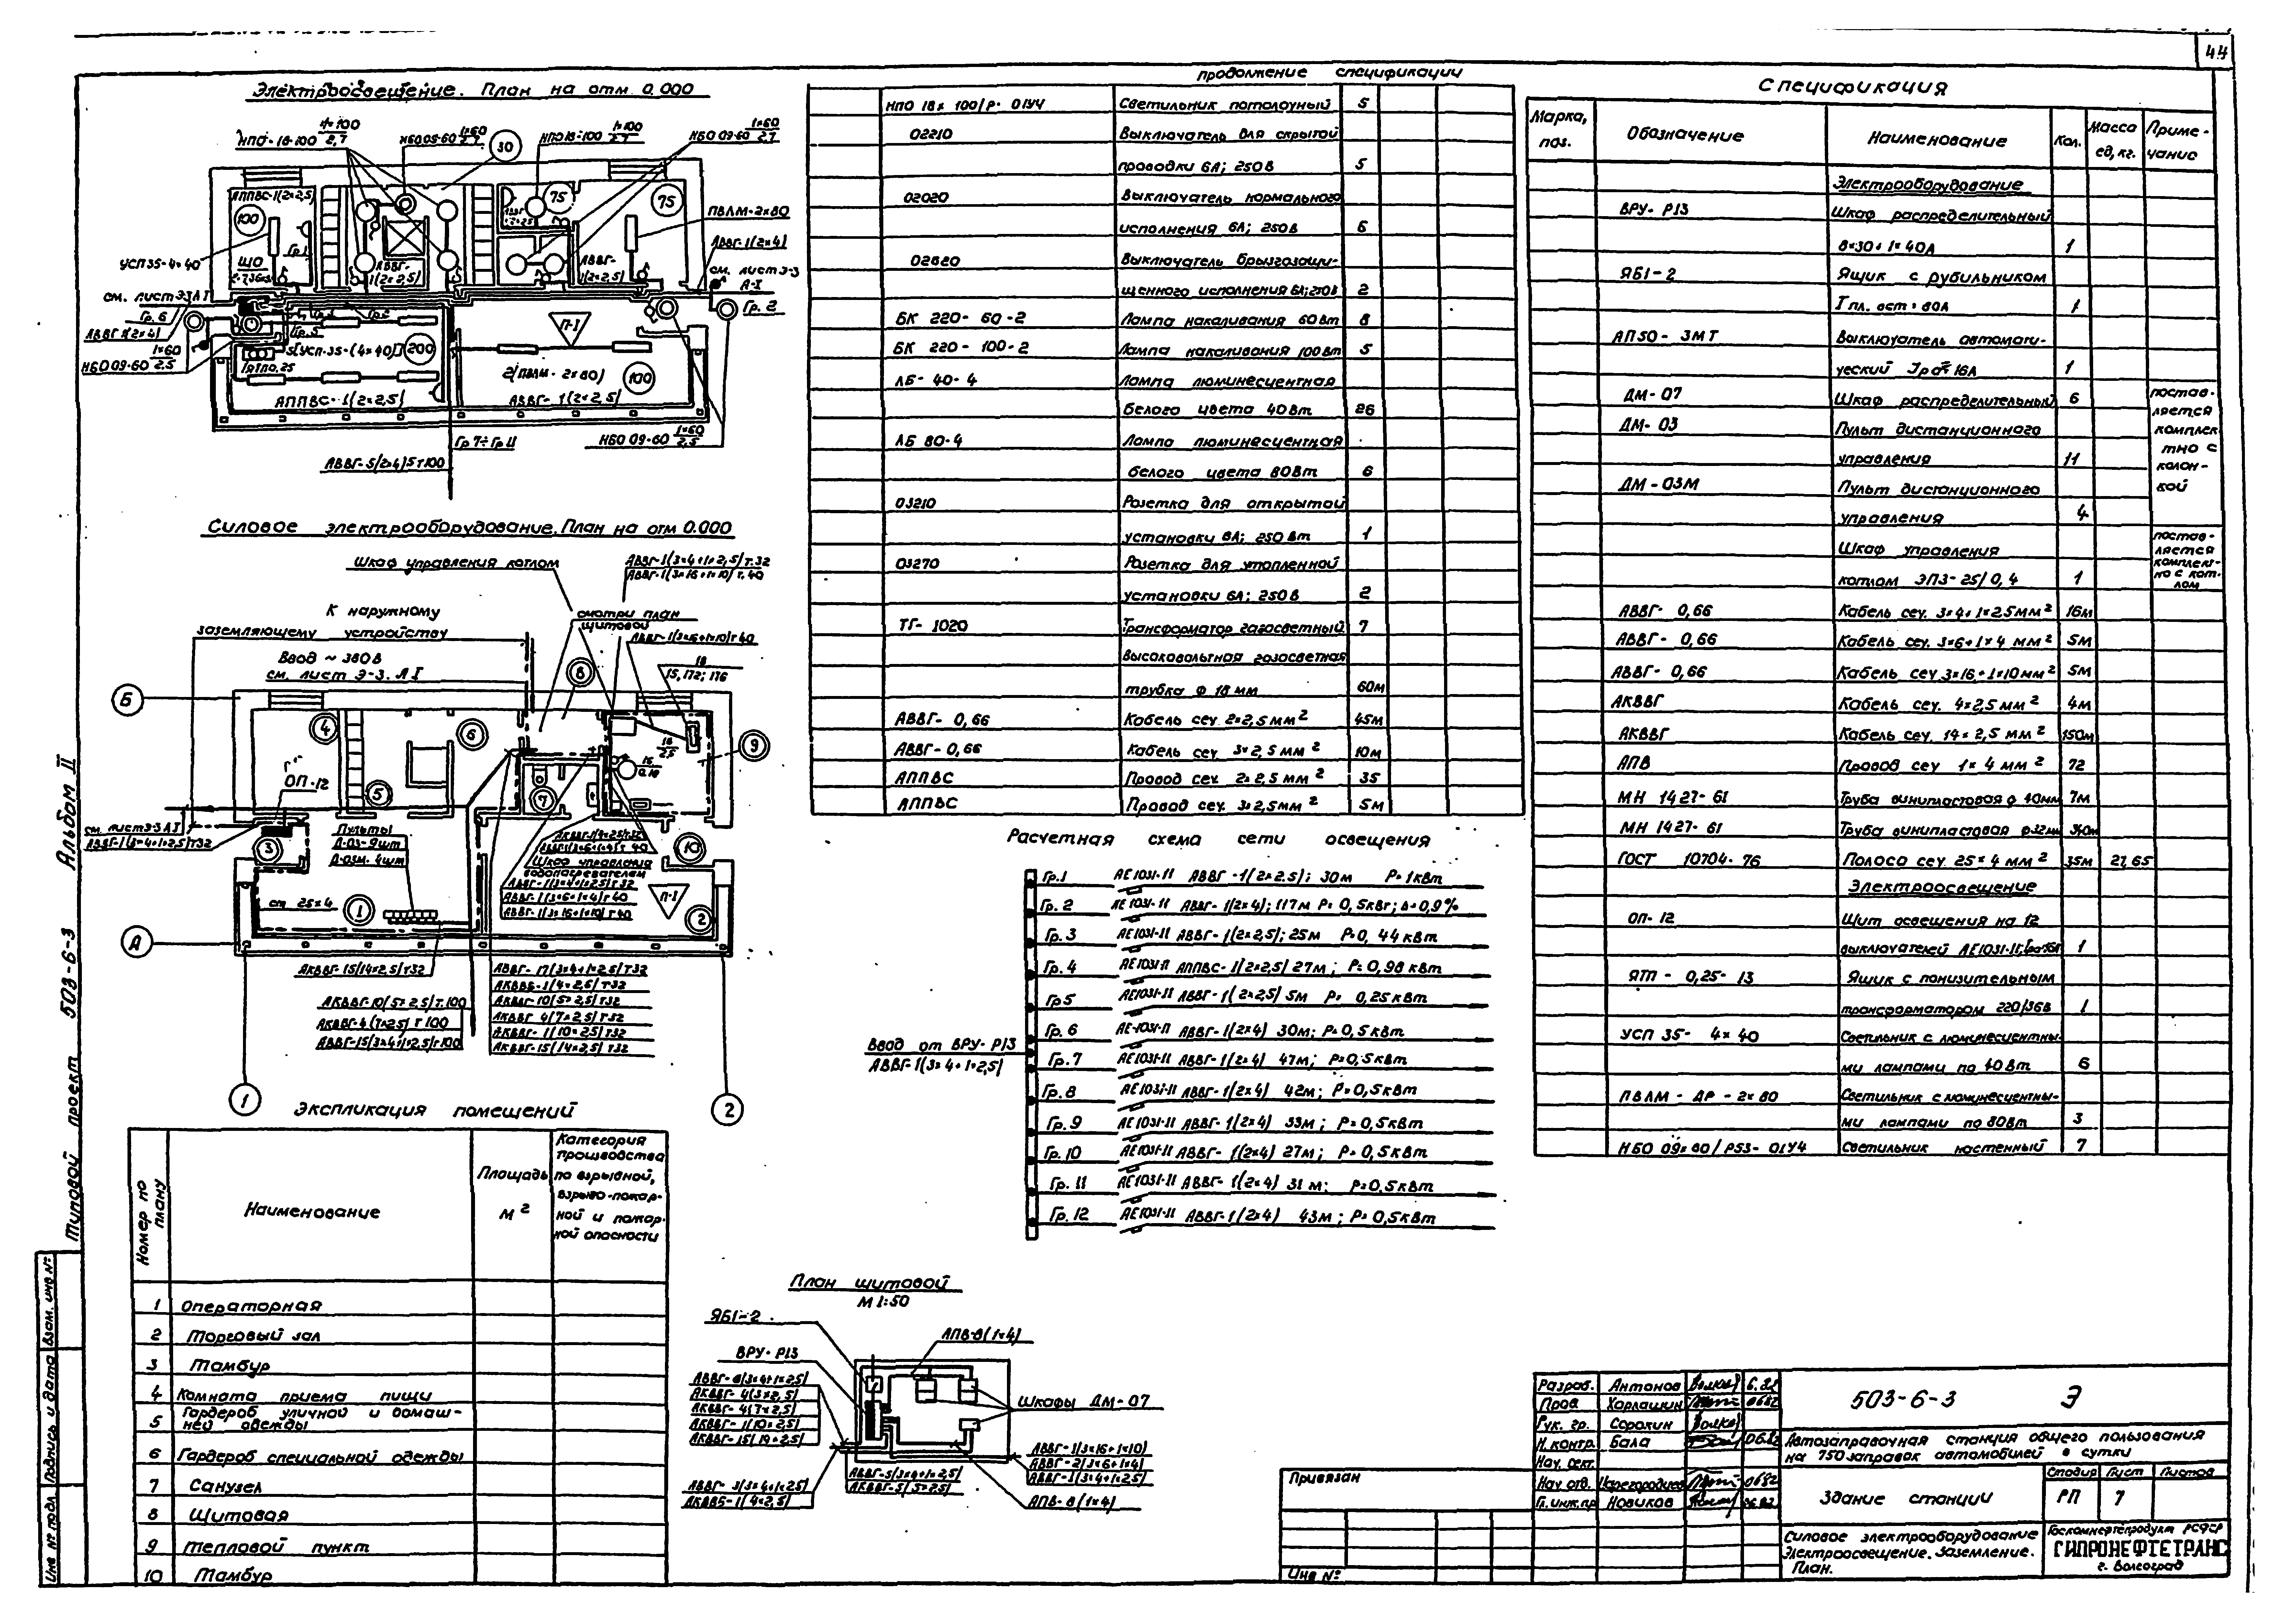 44
Электроосвещение. План на отм 0.000
НПО-18-100 1×100 2,7
НБО 09-60 1×60 2.7
30
НПО18-100 1×100 2.7
НБО 09-60 1×60 2.7
АППВС-1(2×2,5)
100
75
75
ПВЛМ-2×80
АВВГ-1(2×4)
см. лист Э-3
А-I
Гр. 2
УСП 35-4×40
ЩО
Гр.1
АВВГ-1(2×2,5)
АВВГ-1(2×2,5)
см. лист Э3 А I
Гр. 6
АВВГ 1(2×4)
НБО 09-60 1×60 2.5
Гр. 5
5[УСП-35-(4×40)]
200
ЯТП 0.25
П-I
2(ПВЛМ-2×80)
100
АППВС-1(2×2,5)
АВВГ-1(2×2,5)
Гр 7÷Гр 11
НБО 09-60 1×60 2.5
АВВГ-5(2×4)5т100
Силовое электрооборудование. План на отм 0.000
Шкаф управления котлом
АВВГ-1(3×4+1×2,5)т.32
АВВГ-1(3×16+1×10)т.40
К наружному
заземляющему устройству
смотри план
щитовой
АВВГ-1(3×6+1×10)т40
Ввод ~ 380В
см. лист Э-3. А I
18
15, 172; 176
Б
8
4
6
9
18
2.5
ОП-12
5
7
см. лист Э3 А I
АВВГ-1(3×4+1×2,5)т32
3
Пульты
Д-03-9шт
Д-03М. 4шт
АКВВГ-1(4×2,5)т32
АВВГ-1(3×6+1×4)т 40
Шкаф управления
водонагревателем
АВВГ-1(3×4+1×2,5)т 32
АВВГ-1(3×6+1×4)т 40
АВВГ-1(3×16+1×10)т40
10
ст 25×4
1
П-I
2
А
АКВВГ-15(14×2,5)т32
АКВВГ-10(5×2,5)т.100
АКВВГ-4(7×2,5) т 100
АВВГ-15(3×4+1×2,5)т100
АВВГ-17(3×4+1×2,5)т32
АКВВБ-1(4×2,5)т32
АКВВГ-10(5×2,5)т32
АКВВГ 4(7×2,5)т32
АКВВГ-1(10×2,5)т32
АКВВГ-15(14×2,5)т32
1
2
Экспликация помещений
Номер по плану
Наименование
Площадь м²
Категория производства по взрывной, взрыво-пожарной и пожарной опасности
1 Операторная
2 Торговый зал
3 Тамбур
4 Комната приема пищи
5 Гардероб уличной и домашней одежды
6 Гардероб специальной одежды
7 Санузел
8 Щитовая
9 Тепловой пункт
10 Тамбур
продолжение спецификации
НПО 18×100/Р-01У4 Светильник потолочный 5
02210 Выключатель для скрытой
проводки 6А; 250В 5
02020 Выключатель нормального
исполнения 6А; 250В 6
02620 Выключатель брызгозащи-
щенного исполнения 6А; 250В 2
БК 220-60-2 Лампа накаливания 60Вт 8
БК 220-100-2 Лампа накаливания 100Вт 5
ЛБ-40-4 Лампа люминесцентная
белого цвета 40Вт 26
ЛБ 80-4 Лампа люминесцентная
белого цвета 80Вт 6
03210 Розетка для открытой
установки 6А; 250Вт 1
03270 Розетка для утопленной
установки 6А; 250В 2
ТГ-1020 Трансформатор газосветный 7
высоковольтная газосветная
трубка ф 18 мм 60м
АВВГ-0,66 Кабель сеч. 2×2,5 мм² 45м
АВВГ-0,66 Кабель сеч. 3×2,5 мм² 10м
АППВС Провод сеч. 2×2,5 мм² 35
АППВС Провод сеч. 3×2,5мм² 5м
Расчетная схема сети освещения
Гр.1 АЕ1031-11 АВВГ-1(2×2.5); 30м Р=1кВт
Гр. 2 АЕ1031-11 АВВГ-1(2×4); 117м Р=0,5кВт; Δ=0,9%
Гр. 3 АЕ1031-11 АВВГ-1(2×2,5); 25м Р=0,44кВт
Гр. 4 АЕ1031-11 АППВС-1(2×2,5) 27м; Р=0,98кВт
Гр5 АЕ1031-11 АВВГ-1(2×2,5) 5м Р=0,25кВт
Гр. 6 АЕ1031-11 АВВГ-1(2×4) 30м; Р=0,5кВт
Гр. 7 АЕ1031-11 АВВГ-1(2×4) 47м; Р=0,5кВт
Гр. 8 АЕ1031-11 АВВГ-1(2×4) 42м; Р=0,5кВт
Гр. 9 АЕ1031-11 АВВГ-1(2×4) 33м; Р=0,5кВт
Гр. 10 АЕ1031-11 АВВГ-1(2×4) 27м; Р=0,5кВт
Гр. 11 АЕ1031-11 АВВГ-1(2×4) 31м; Р=0,5кВт
Гр. 12 АЕ1031-11 АВВГ-1(2×4) 43м; Р=0,5кВт
Ввод от ВРУ-Р13
АВВГ-1(3×4+1×2,5)
План щитовой
М 1:50
ЯБ1-2
ВРУ-Р13
АПВ-8(1×4)
АВВГ-8(3×4+1×2,5)
АКВВГ-4(3×2,5)
АКВВГ-4(7×2,5)
АКВВГ-1(10×2,5)
АКВВГ-15(14×2,5)
Шкафы ДМ-07
АВВГ-3(3×4+1×2,5)
АКВВБ-1(4×2,5)
АВВГ-5(3×4+1×2,5)
АКВВГ-5(5×2,5)
АВВГ-1(3×16+1×10)
АВВГ-2(3×6+1×4)
АВВГ-1(3×4+1×2,5)
АПВ-8(1×4)
Спецификация
Марка, поз. Обозначение Наименование Кол. Масса ед, кг. Приме-чание
Электрооборудование
ВРУ-Р13 Шкаф распределительный
8×30+1×40А 1
ЯБ1-2 Ящик с рубильником
I пл. вст=80А 1
АП50-3МТ Выключатель автомати-
ческий Iра=16А 1
ДМ-07 Шкаф распределительный 6
ДМ-03 Пульт дистанционного
управления 11
ДМ-03М Пульт дистанционного
управления 4
постав-ляется комплек тно с колон-кой
Шкаф управления
котлом ЭПЗ-25/0,4 1
постав-ляется комплект-но с кот-лом
АВВГ-0,66 Кабель сеч. 3×4+1×2,5мм² 16м
АВВГ-0,66 Кабель сеч. 3×6+1×4 мм² 5м
АВВГ-0,66 Кабель сеч 3×16+1×10мм² 5м
АКВВГ Кабель сеч. 4×2,5 мм² 4м
АКВВГ Кабель сеч. 14×2,5 мм² 150м
АПВ Провод сеч 1×4 мм² 72
МН 1427-61 Труба винипластовая ф 40мм 7м
МН 1427-61 Труба винипластовая ф32мм 340м
ГОСТ 10704-76 Полоса сеч 25×4 мм² 35м 27,65
Электроосвещение
ОП-12 Щит освещения на 12
выключателей АЕ1031-11 1
ЯТП-0,25-13 Ящик с понизительным
трансформатором 220/36В 1
УСП 35-4×40 Светильник с люминесцентны-
ми лампами по 40Вт 6
ПВЛМ-ДР-2×80 Светильник с люминесцентны-
ми лампами по 80Вт 3
НБО 09×60/Р53-01У4 Светильник настенный 7
Разраб. Антонов 6.82
Пров Харлашин 0682
Рук. гр. Сорокин
Н. контр. Бала 06.82
Нач. сект.
Нач. отд. Царегородцев 0682
Гл. инж. пр Новиков 06.82
503-6-3 Э
Автозаправочная станция общего пользования
на 750 заправок автомобилей в сутки
Здание станции
Стадия Лист Листов
РП 7
Силовое электрооборудование
Электроосвещение. Заземление.
План.
Госкомнефтепродукт РСФСР
ГИПРОНЕФТЕТРАНС
г. Волгоград
Привязан
Инв №
Типовой проект 503-6-3 Альбом II
Инв № подл
Подпись и дата
Взам. инв №